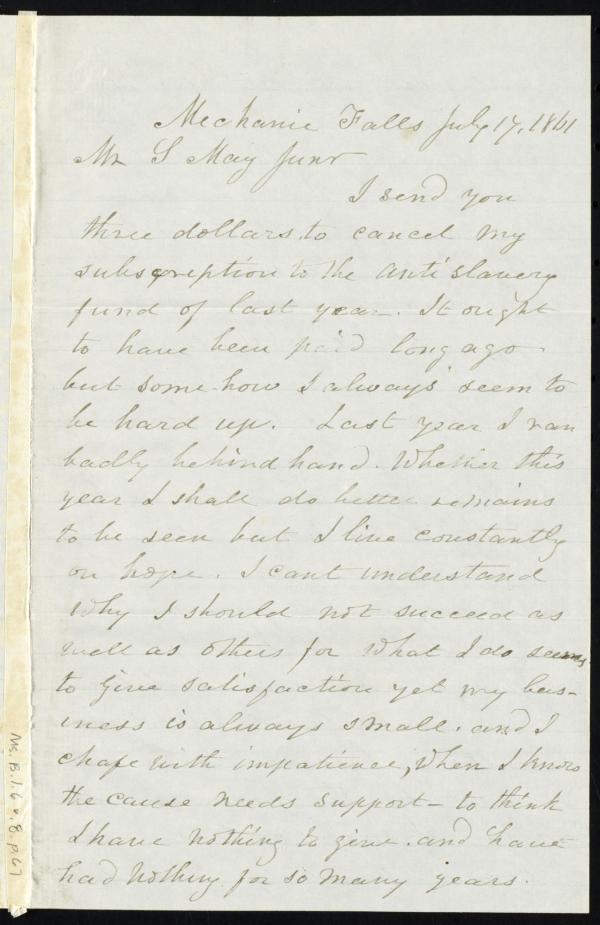 Mechanic Falls July 17, 1861
Mr S May Junr
I send you
three dollars. to cancel my
subscreption to the anti slavery
fund of last year. It ought
to have been paid long ago
but some-how I always seem to
be hard up. Last year I ran
badly behind hand. Whether this
year I shall do better remains
to be seen but I live constantly
on hope. I cant understand
why I should not succeed as
well as others for what I do seems
to give satisfaction yet my bus-
iness is always small. and I
chafe with impatience, when I know
the cause needs support - to think
I have nothing to give. and have
had nothing for so many years.
Ms. B.1.6 v.8. p.67